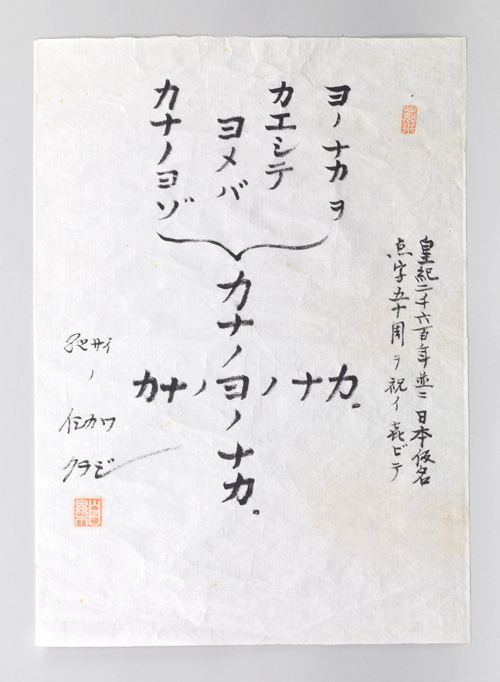 皇紀二千六百年並ニ日本仮名
点字五十周ヲ祝イ喜ビテ
ヨノナカヲ
カエシテ
ヨメバ
カナノヨゾ
カナノヨノナカ。
カナノヨノナカ。
ノ
イシカワ
クラジ